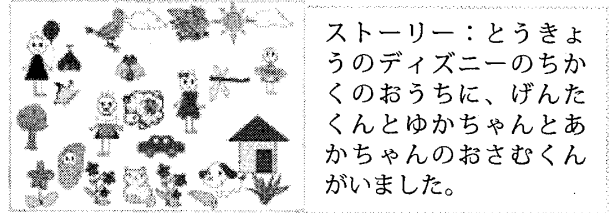 ストーリー：とうきょ
うのディズニーのちか
くのおうちに、げんた
くんとゆかちゃんとあ
かちゃんのおさむくん
がいました。